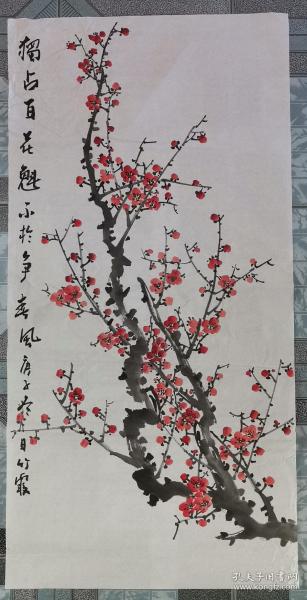 獨占百花魁不於争春風庚子冬月竹霞
孔夫子旧书网